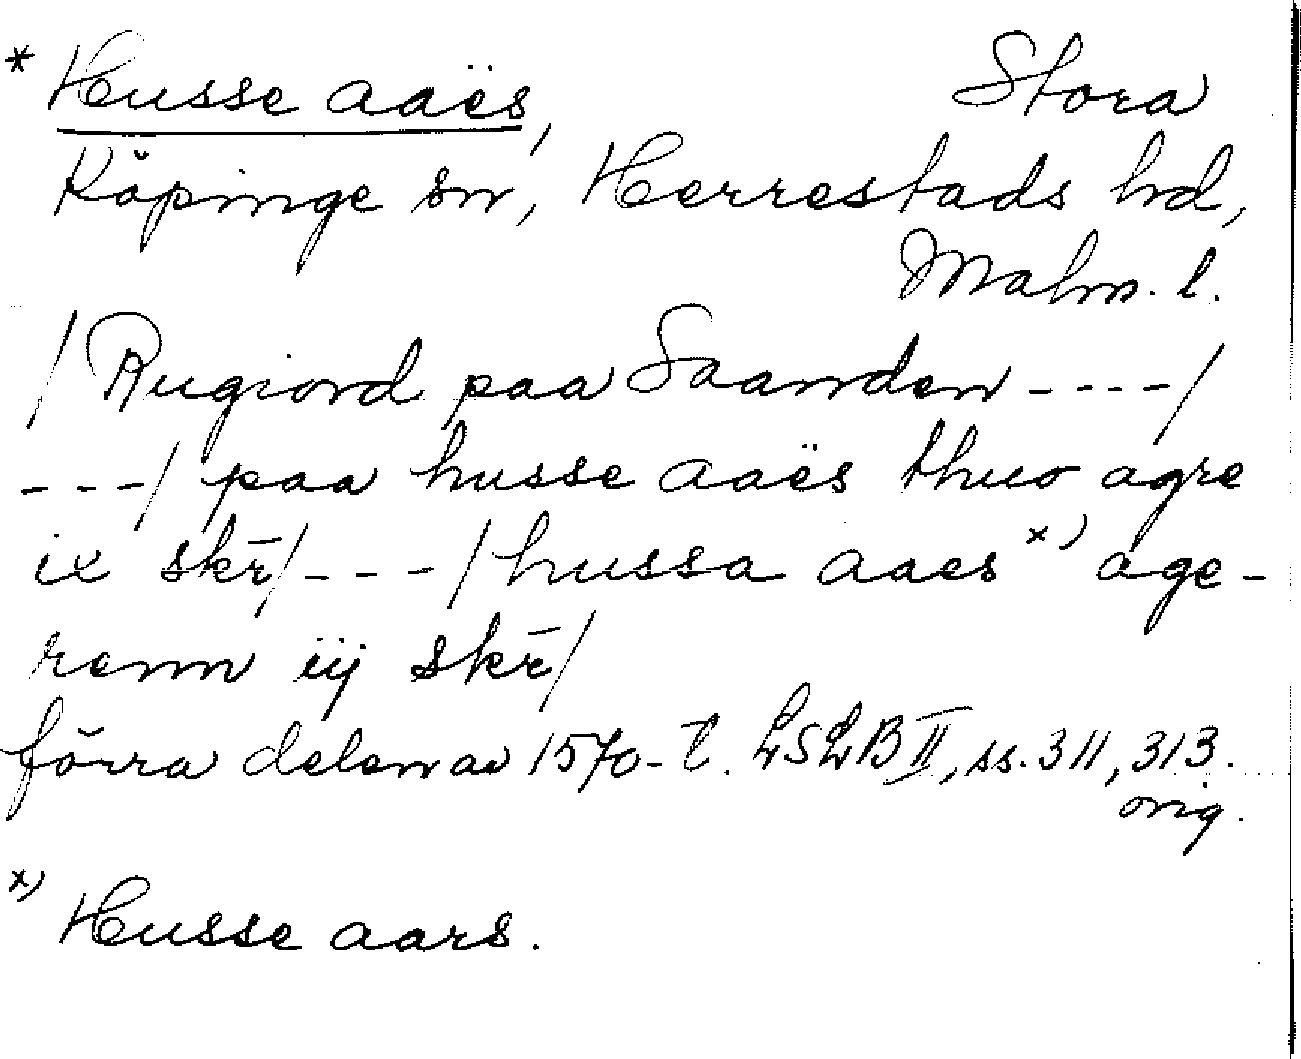 * Husse aaës, Stora
Köpinge sn, Herrestads hd,
Malm. l.
/ Rugiord paa Saanden ----/
---/ paa husse aaës thuo agre
ix skr̄/---/ hussa aaes x) age-
renn iij skr̄/
förra delen av 1570-t. LSLB II, ss. 311, 313.
orig.
x) Husse aars.